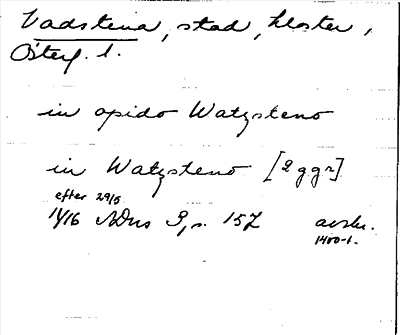 Vadstena, stad, kloster,
Österg. l.
in opido Watzsteno
in Watzsteno [2 ggr]
efter 29/5
1416 ADns 3, s. 157 avskr.
1400-t.